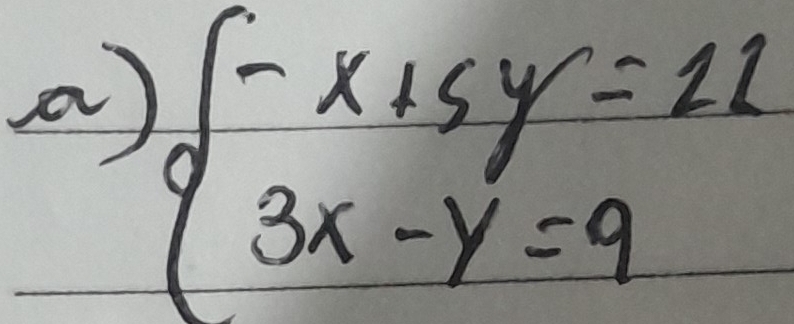 a) { -x+5y=11
3x-y=9